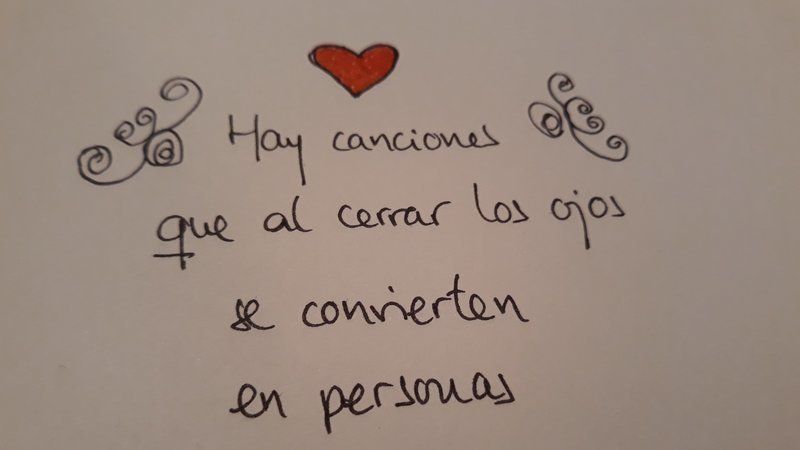 Hay canciones
que al cerrar los ojos
se convierten
en personas